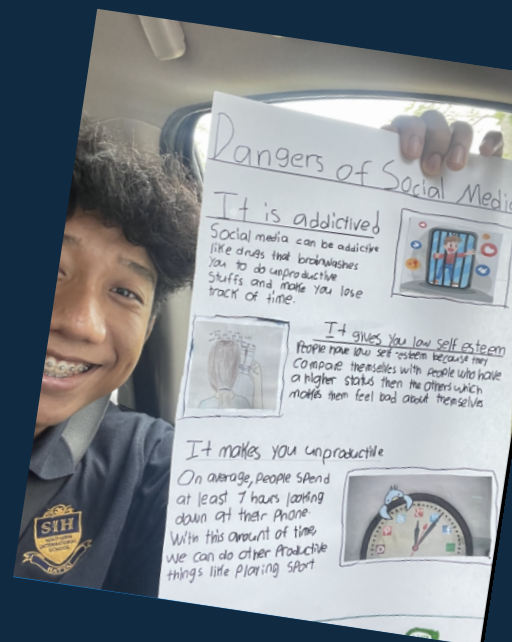 Dangers of Social Media
It is addictived
Social media can be addictive
like drugs that brainwashes
you to do unproductive
stuffs and make you lose
track of time.
It gives you low self esteem
People have low self esteem because they
compare themselves with people who have
a higher status then the others which
makes them feel bad about themselves
It makes you unproductive
On average, people spend
at least 7 hours looking
down at their phone.
With this amount of time,
we can do other productive
things like playing sport
SIH
INTERNATIONAL
SCHOOL
HATYAI